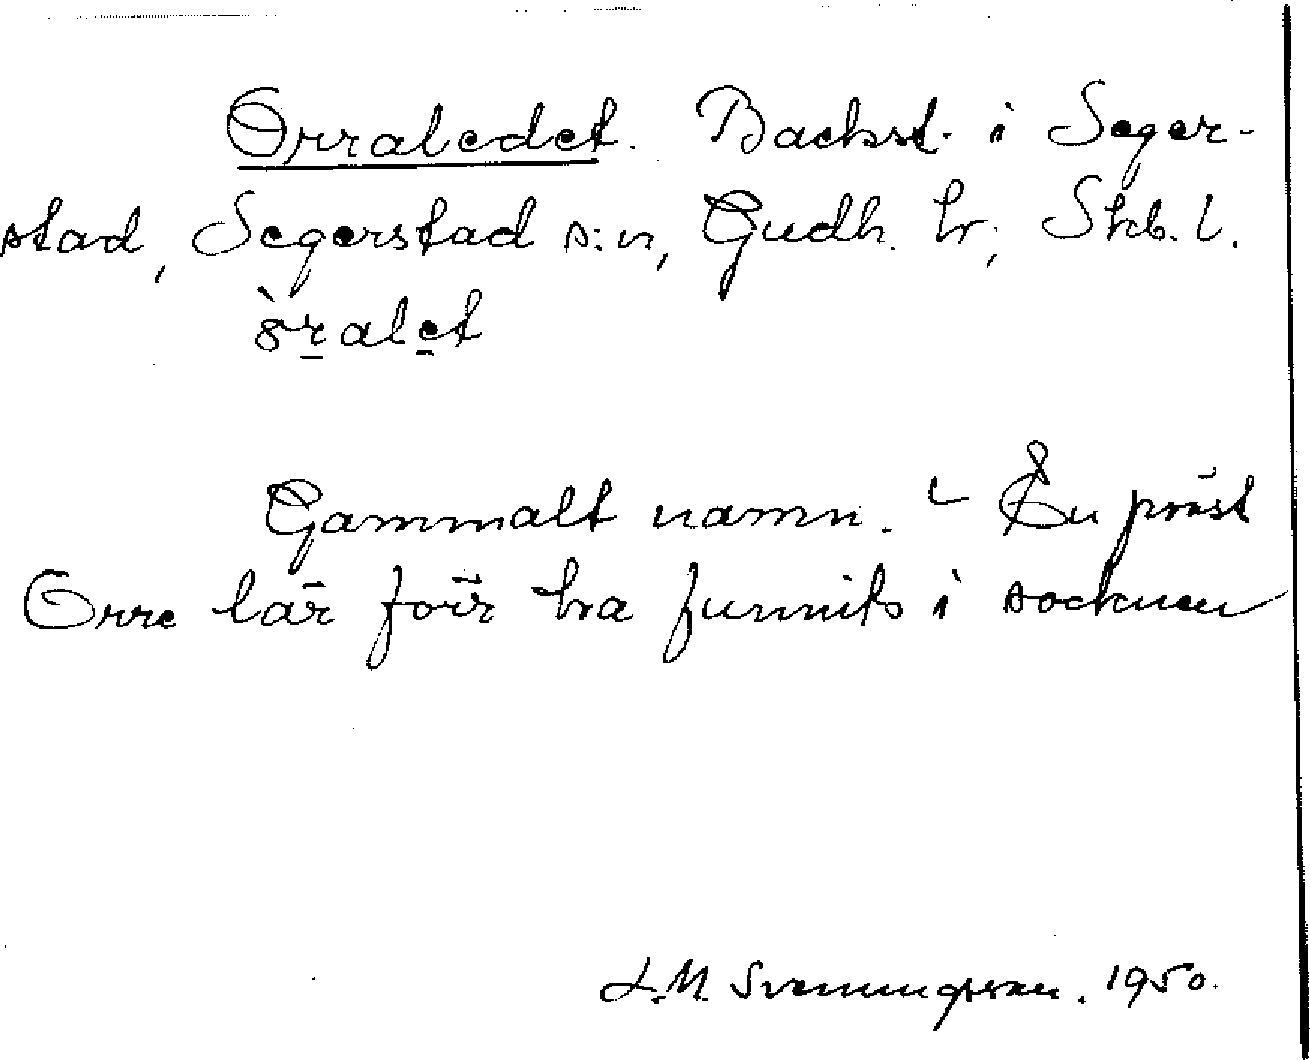 Orraledet. Backst. i Seger-
stad, Segerstad s:n, Gudh. hr, Skb. l.
òralet
Gammalt namn. - En präst
Orre lär förr ha funnits i socknen
L.M. Svenungsson. 1950.